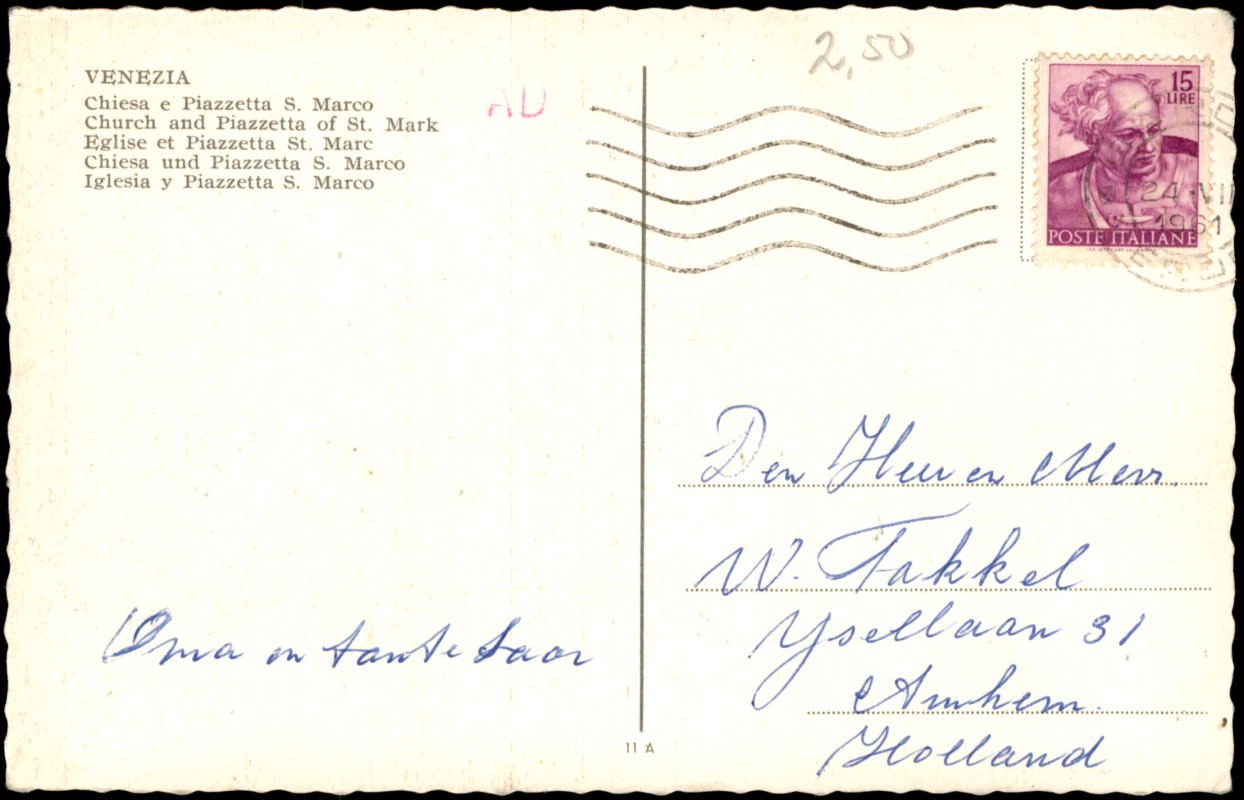 VENEZIA
Chiesa e Piazzetta S. Marco
Church and Piazzetta of St. Mark
Eglise et Piazzetta St. Marc
Chiesa und Piazzetta S. Marco
Iglesia y Piazzetta S. Marco
AU
2,50
15
LIRE
24·VII
1961
POSTE ITALIANE
Den Heer en Mevr.
W. Fakkel
Ysellaan 31
Arnhem.
Holland
Oma en tante Saar
11 A